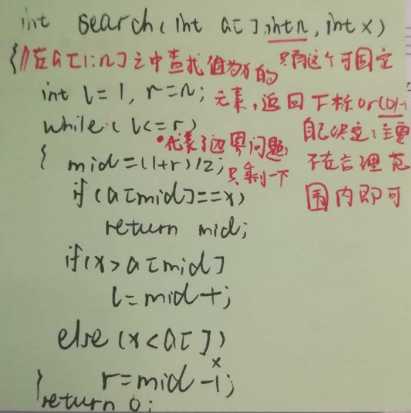 int search(int a[],int n,int x)
{//在a[1:n]之中查找值为x的 只有这个可固定
int l=1, r=n; 元素,返回下标or(0)-
while(l<=r) 自己决定;主要
•代表了边界问题, 不在合理范
{ mid=(l+r)/2; 只剩一下 围内即可
if(a[mid]==x)
return mid;
if(x>a[mid]
l=mid+;
else(x<a[])
r=mid-1;
}
return 0;